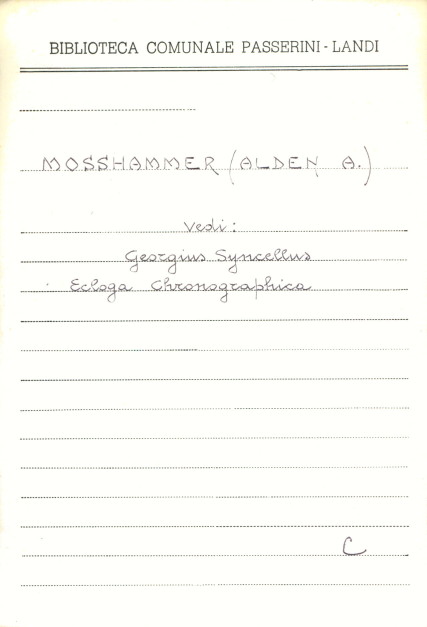 BIBLIOTECA COMUNALE PASSERINI - LANDI
MOSSHAMMER (ALDEN A.)
Vedi:
Georgius Syncellus
Ecloga Chronographica
C